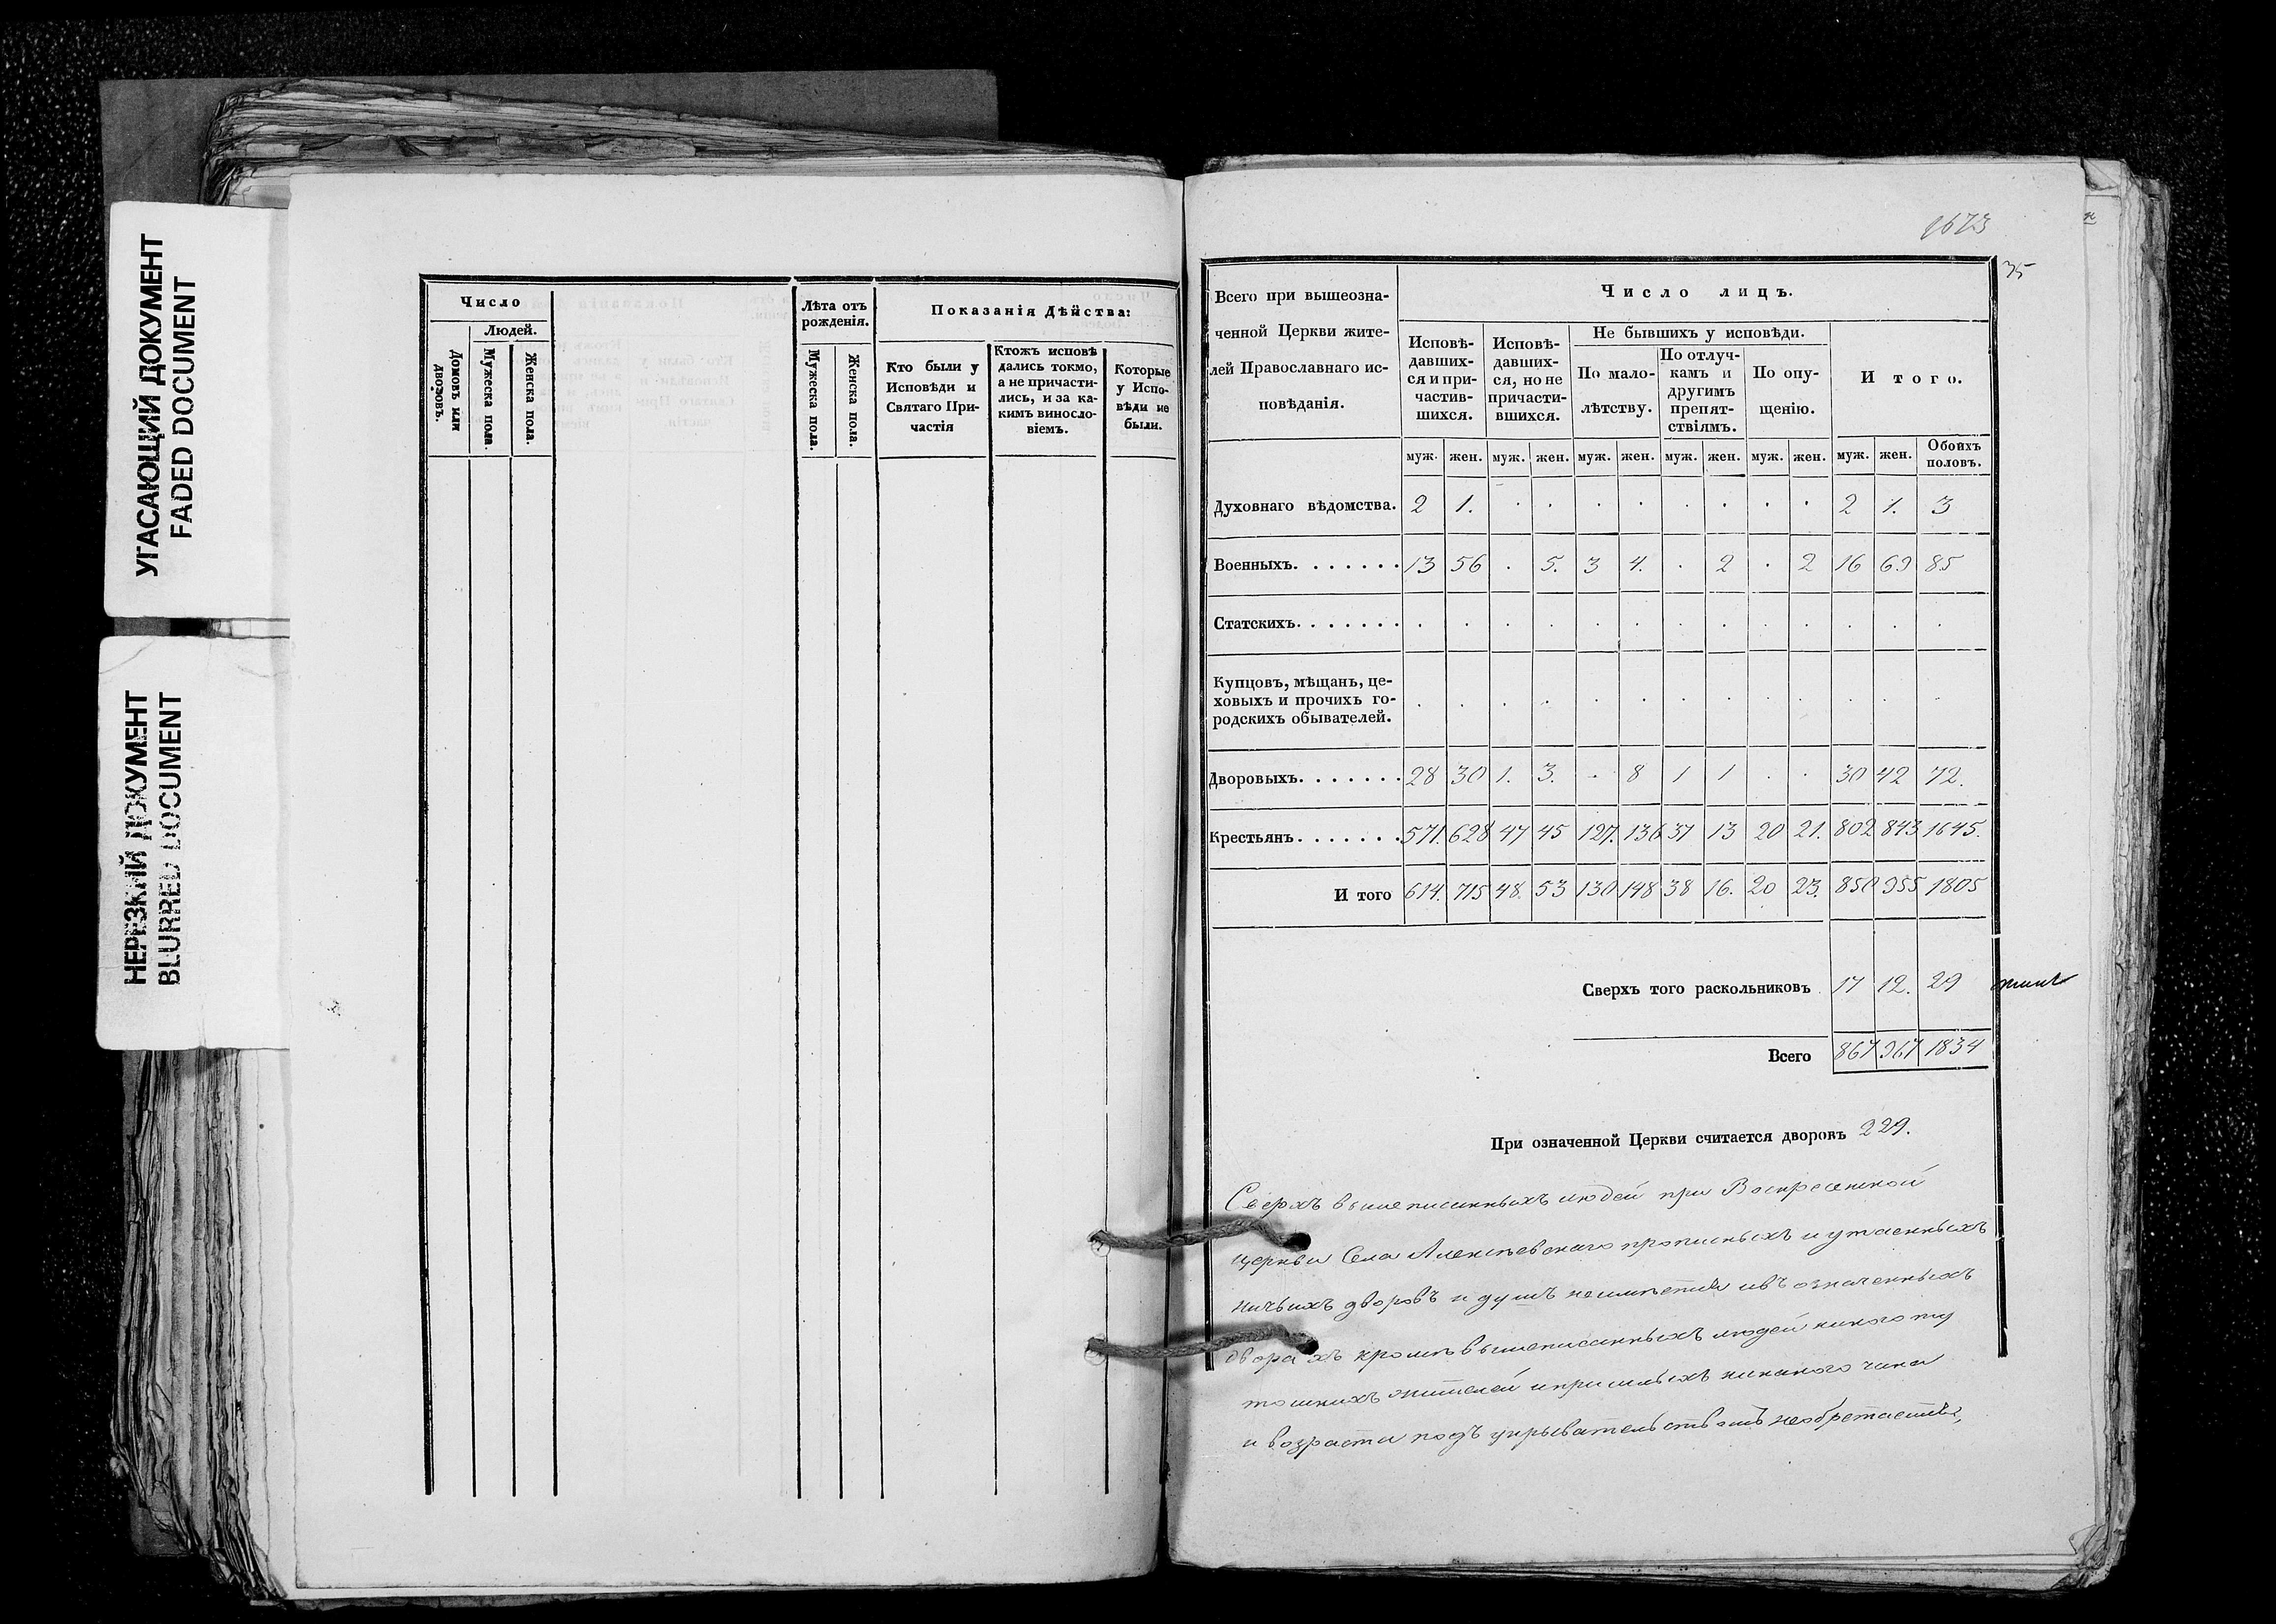 УГАСАЮЩИЙ ДОКУМЕНТ
FADED DOCUMENT
НЕРЕЗКИЙ ДОКУМЕНТ
BLURRED DOCUMENT
Число
Людей.
Домовъ или дворовъ.
Мужеска пола.
Женска пола.
Лѣта отъ рожденія.
Мужеска пола.
Женска пола.
Показанія Дѣйства:
Кто были у
Исповѣди и
Святаго При-
частія
Ктожъ исповѣ
дались токмо,
а не причасти-
лись, и за ка-
кимъ винosло-
віемъ.
Которые
у Испо-
вѣди не
были.
1673
35
Всего при вышеозна-
ченной Церкви жите-
лей Православнаго ис-
повѣданія.
Число лицъ.
Исповѣ-
давших-
ся и при-
частив-
шихся.
Исповѣ-
давших-
ся, но не
причасти-
вшихся.
Не бывшихъ у исповѣди.
По мало-
лѣтству.
По отлуч-
камъ и
другимъ
препят-
ствіямъ.
По опу-
щенію.
И того.
муж. жен. муж. жен. муж. жен. муж. жен. муж. жен. муж. жен. Обоихъ половъ.
Духовнаго вѣдомства. 2 1. . . . . . . . . 2 1. 3
Военныхъ. . . . . . . 13 56 . 5. 3 4. . 2 . 2 16 69 85
Статскихъ. . . . . . . . . . . . . . . . . . . .
Купцовъ, мѣщанъ, це-
ховыхъ и прочихъ го-
родскихъ обывателей. . . . . . . . . . . . . .
Дворовыхъ. . . . . . . 28 30 1. 3. . 8 1 1 . . 30 42 72.
Крестьянъ. . . . . . . 571. 628 47 45 127. 136 37 13 20 21. 802 843 1645.
И того 614. 715 48. 53 130 148 38 16. 20 23. 850 955 1805
Сверхъ того раскольниковъ 17 12. 29
Всего 867 967 1834
При означенной Церкви считается дворовъ 229.
Сверхъ вышеписанныхъ людей при Воскресенской
церкви Села Алексѣевскаго прописныхъ и утаенныхъ
ничьихъ дворовъ и душъ неимѣется ивъ означенныхъ
дворахъ кромѣ вышеписанныхъ людей никого ту
тошнихъ жителей ипришлыхъ никакого чина
и возраста подъ укрывательствомъ необретается,